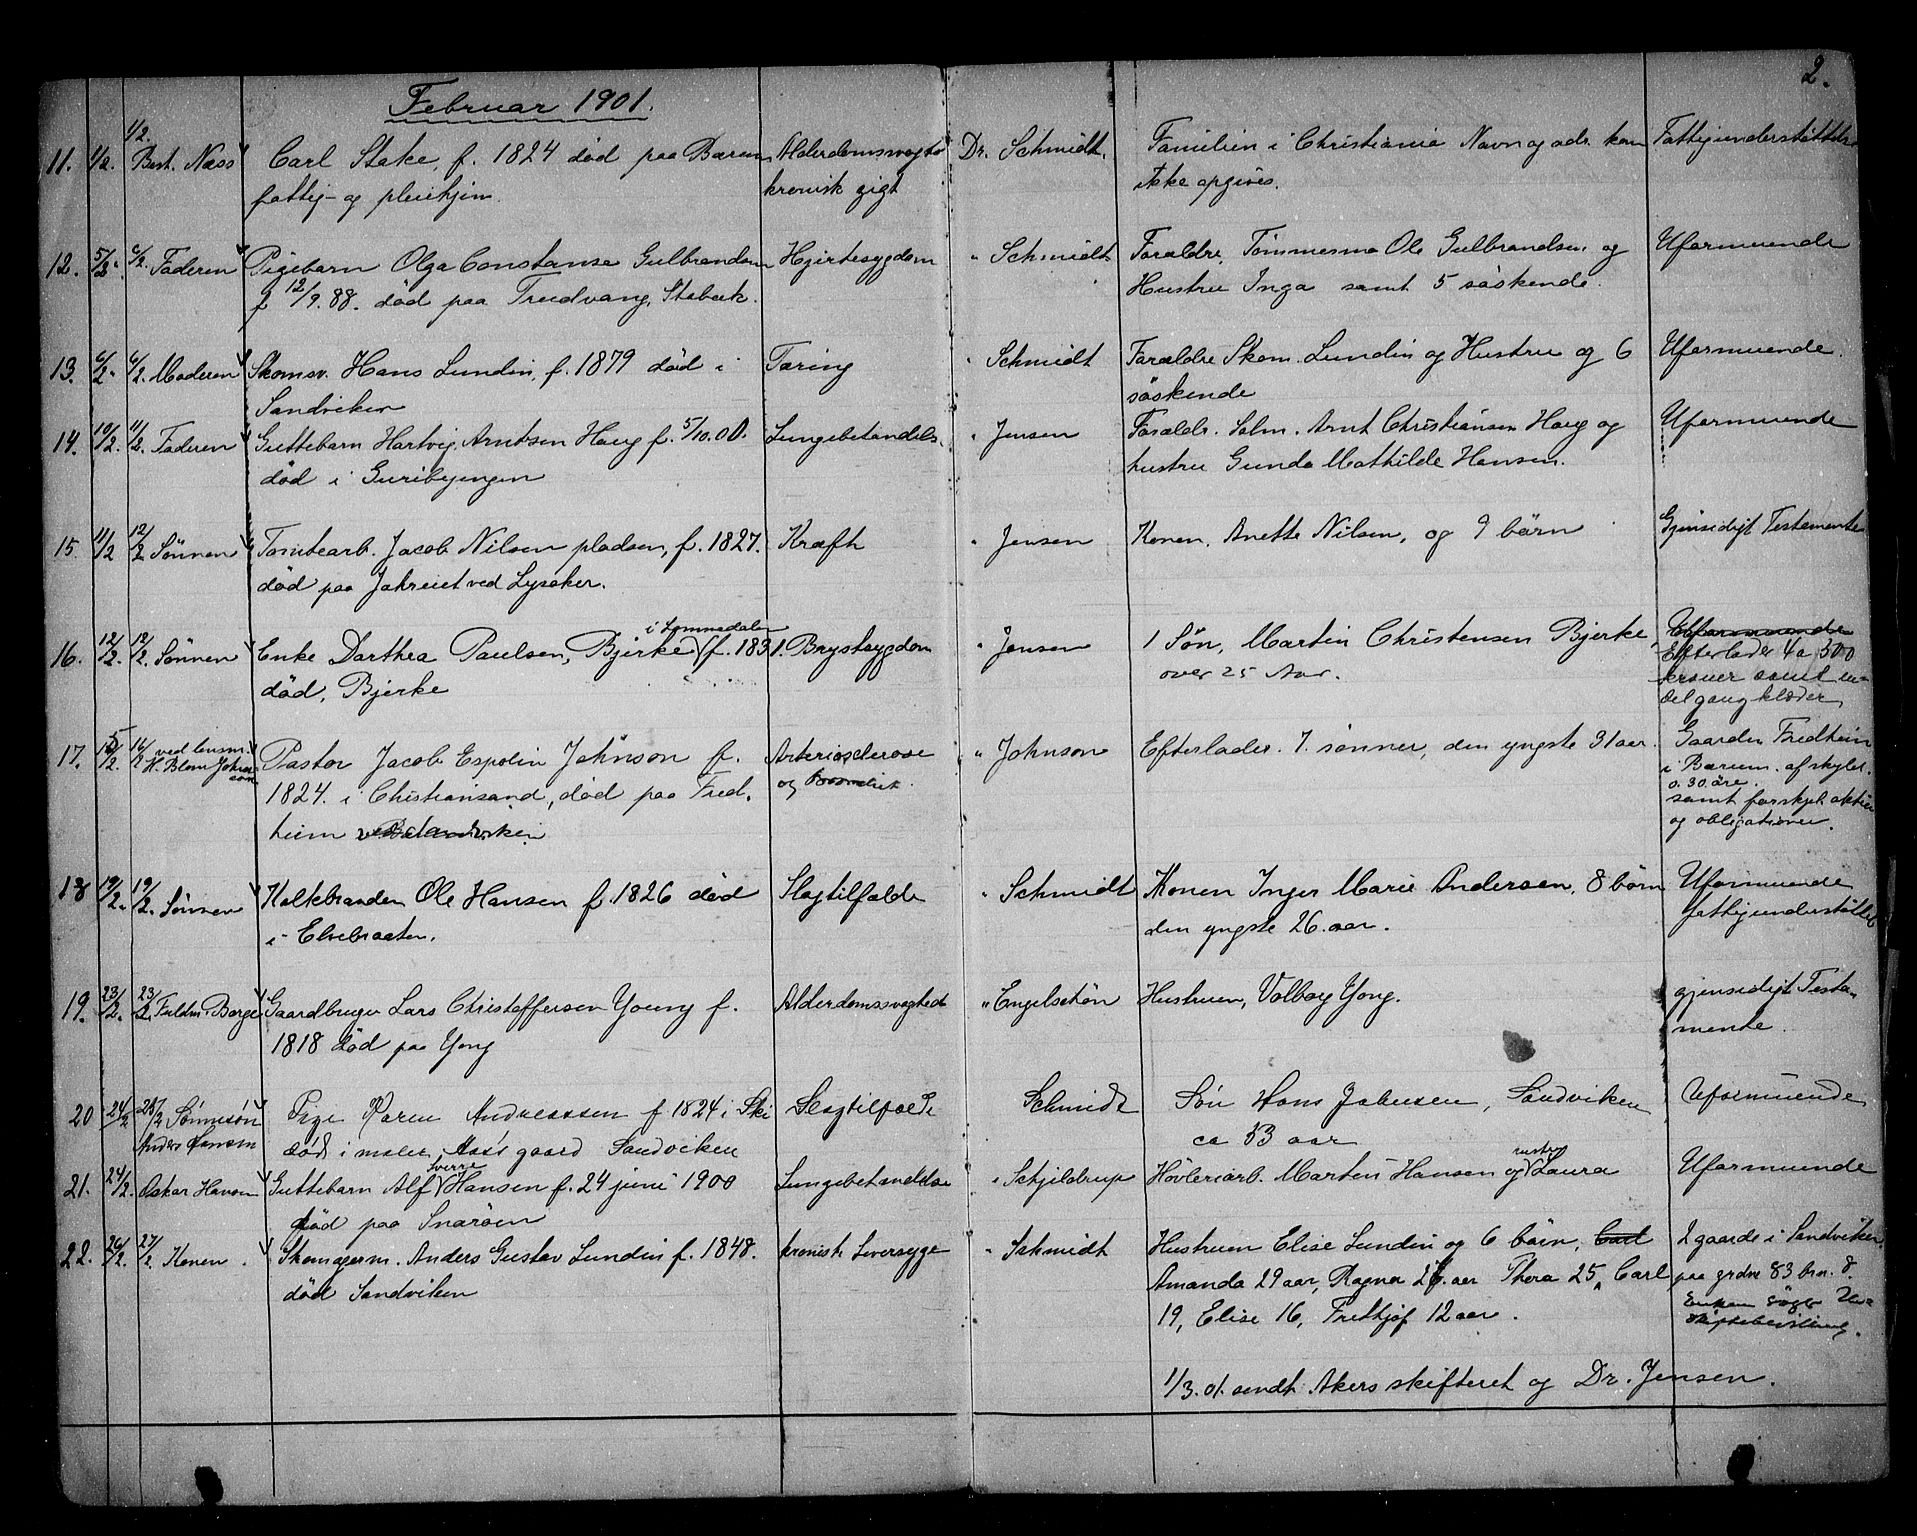 2.
Februar 1901.
11. 1/2. 1/2. Best. Næss Carl Stake, f. 1824 död paa Bærum Alderdomssvaghed Dr. Schmidt. Familien i Christiania Navn og adr. kan Fattigunderstöttelse
fattig- og pleiehjem. kronisk gigt ikke opgives.
12. 5/2. 6/2. Faderen Pigebarn Olga Constanse Gulbrandsen Hjertesygdom " Schmidt Forældre, Tömmesmd Ole Gulbrandsen og Uformuende
f 12/9. 88. död paa Trudvang, Stabæk. Hustru Inga samt 5 söskende.
13. 6/2. 6/2. Moderen Skomsv. Hans Lundin, f. 1879 död i Tæring " Schmidt Forældre Skom. Lundin og Hustru og 6 Uformuende.
Sandviken söskende
14. 10/2. 11/2. Faderen Guttebarn Hartvig Arntsen Haug f. 5/10.00. Lungebetændels. " Jensen Foreldr. Salm. Arnt Christiansen Haug og Uformuende
död i Guribyengen hustru Gunda Mathilde Hansen.
15. 11/2 12/2 Sönnen Tomtearb. Jacob Nilsen pladsen, f. 1827. Kræft " Jensen Konen, Anette Nilsen, og 9 börn Gjensidigt Testamente
död paa Jahreiet ved Lysaker.
i Lommedalen
16. 12/2. 12/2. Sönnen Enke Darthea Paulsen, Bjerke f. 1831. Brystsygdom " Jensen 1 Sön, Martin Christensen Bjerke, Uformuende
död, Bjerke over 25 Aar. Efterlader ca 500
kroner samt en-
del gangklæder
17. 15/2. 16/2 ved lensm. Pastor Jacob Espolin Johnson f. Arteriosclerose " Johnson Efterlader 7 sönner, den yngste 31 aar. Gaarden Fredheim
H. Blom Johnson 1824. i Christiansand, död paa Fred- og i Bærum. af skyld.
heim ved Sandviken o. 30. öre.
samt forskjel. aktier
og obligationer.
18 19/2. 19/2. Sönnen Kalkbrænder Ole Hansen f. 1826 död Slagtilfælde " Schmidt Konen Inger Marie Andersen, 8 börn Uformuende
i Elvebraaten. den yngste 26. aar. fattigunderstöttet
19. 23/2. 23/2. Fuldm. Borge Gaardbruger Lars Christoffersen Young f. Alderdomssvaghed " Engelschön Hustruen, Valborg Yong. gjensidigt Testa-
1818 död paa Yong mente.
20 24/2 25/2 Sönnesön Pige Karen Andreassen f 1824 i Ski Slagtilfælde Schmidt Sön Hans Johnsen, Sandviken Uformuende
Anders Hansen död i maler Aas's gaard Sandviken ca 53 aar
Sverre hustru
21. 24/2. Oskar Hansen Guttebarn Alf Hansen f. 24 juni 1900 Lungebetændelse " Schjeldrup Hövleriarb. Martin Hansen og Laura Uformuende
död paa Snaröen
22. 26/2. 27/2. Konen. Skomagerm. Anders Gustav Lundin f. 1848. kronisk Leversyge " Schmidt Hustruen Elise Lundin og 6 börn, Carl 2 gaarde i Sandviken
död Sandviken Amanda 29 aar, Ragna 26. aar Thora 25, Carl, paa grdne 83 bno. 8.
19, Elise 16, Fritjof 12 aar. Enken söger Uskiftebevilling.
1/3. 01. sendt Akers skifteret og Dr. Jensen.